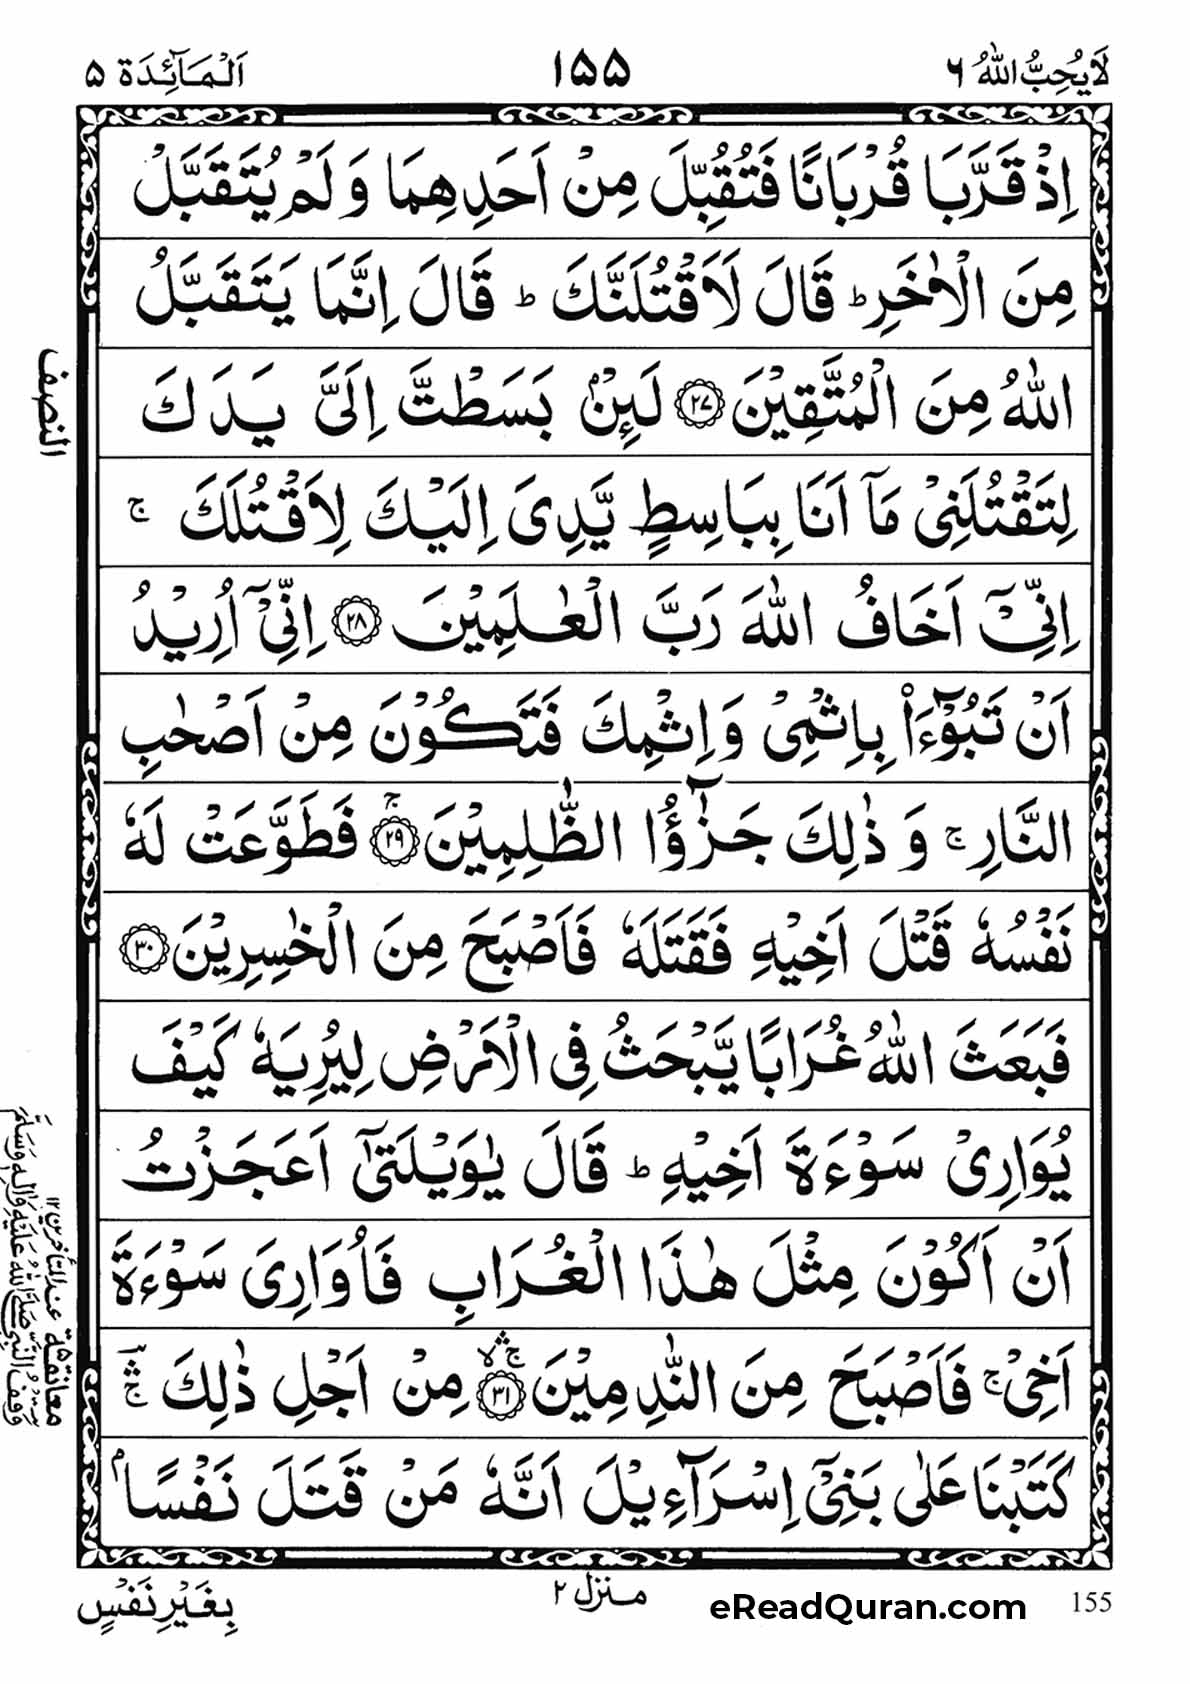 لَا يُحِبُّ اللّٰهُ ۶
۱۵۵
اَلْمَآئِدَة ۵
اِذْ قَرَّبَا قُرْبَانًا فَتُقُبِّلَ مِنْ اَحَدِهِمَا وَ لَمْ يُتَقَبَّلْ
مِنَ الْاٰخَرِ ؕ قَالَ لَاَقْتُلَنَّكَ ؕ قَالَ اِنَّمَا يَتَقَبَّلُ
اللّٰهُ مِنَ الْمُتَّقِيْنَ ﴿۲۷﴾ لَئِنْۢ بَسَطْتَّ اِلَيَّ يَدَكَ
لِتَقْتُلَنِيْ مَاۤ اَنَا بِبَاسِطٍ يَّدِيَ اِلَيْكَ لِاَقْتُلَكَ ۚ
اِنِّيْۤ اَخَافُ اللّٰهَ رَبَّ الْعٰلَمِيْنَ ﴿۲۸﴾ اِنِّيْۤ اُرِيْدُ
اَنْ تَبُوْٓءَاۡ بِاِثْمِيْ وَ اِثْمِكَ فَتَكُوْنَ مِنْ اَصْحٰبِ
النَّارِ ۚ وَ ذٰلِكَ جَزٰٓؤُا الظّٰلِمِيْنَ ۚ﴿۲۹﴾ فَطَوَّعَتْ لَهٗ
نَفْسُهٗ قَتْلَ اَخِيْهِ فَقَتَلَهٗ فَاَصْبَحَ مِنَ الْخٰسِرِيْنَ ﴿۳۰﴾
فَبَعَثَ اللّٰهُ غُرَابًا يَّبْحَثُ فِي الْاَرْضِ لِيُرِيَهٗ كَيْفَ
يُوَارِيْ سَوْءَةَ اَخِيْهِ ؕ قَالَ يٰوَيْلَتٰۤى اَعَجَزْتُ
اَنْ اَكُوْنَ مِثْلَ هٰذَا الْغُرَابِ فَاُوَارِيَ سَوْءَةَ
اَخِيْ ۚ فَاَصْبَحَ مِنَ النّٰدِمِيْنَ ۚۛۙ﴿۳۱﴾ مِنْ اَجْلِ ذٰلِكَ ۚۛؔ
كَتَبْنَا عَلٰى بَنِيْۤ اِسْرَآءِيْلَ اَنَّهٗ مَنْ قَتَلَ نَفْسًاۢ
النصف
معانقة ۵ عند المتأخرين ۱۲
وقف النبي صَلَّى اللّٰهُ عَلَيْهِ وَاٰلِهٖ وَسَلَّمَ
بِغَيْرِ نَفْسٍ
منزل ۲
eReadQuran.com
155